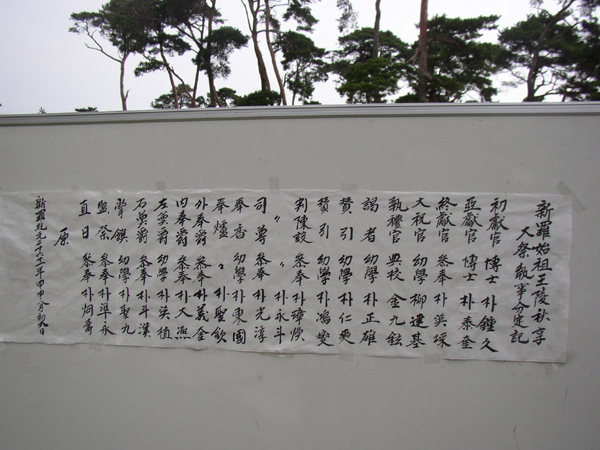 新羅始祖王陵秋享
大祭執事分定記
初獻官 博士 朴鍾久
亞獻官 博士 朴泰奎
終獻官 參奉 朴英琛
大祝官 幼學 柳建基
執禮官 典校 金九鉉
謁者 幼學 朴正雄
贊引 幼學 朴仁奭
贊引 幼學 朴鴻燮
判陳設 參奉 朴璋煥
〃 〃 朴永斗
司尊 參奉 朴光淳
奉香 幼學 朴東國
奉爐 〃 朴聖欽
外奉爵 參奉 朴義全
內奉爵 參奉 朴大
左奠爵 幼學 朴英植
右奠爵 參奉 朴斗漢
掌饌 幼學 朴聖九
監祭 參奉 朴準永
直日 參奉 朴炳
原
新羅紀元二千六十一年甲申八月